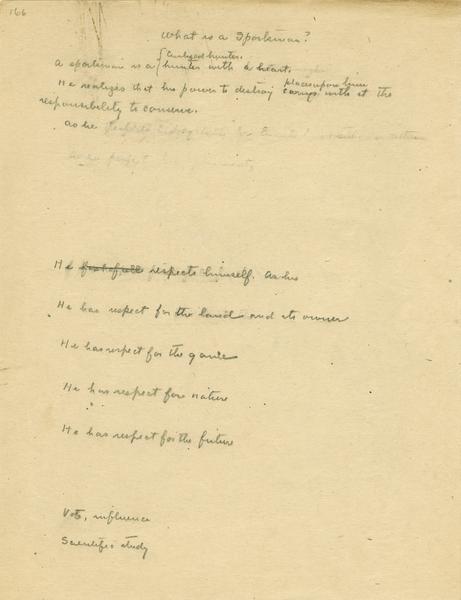 166
What is a Sportsman?
hunter.
A sportsman is a hunter with a heart.
places upon him
He realizes that his power to destroy carries with it the
responsibility to conserve.
As he
He respects himself. As his
He has respect for the land and its owner
He has respect for the game
He has respect for nature
He has respect for the future
Vote, influence
Scientific study